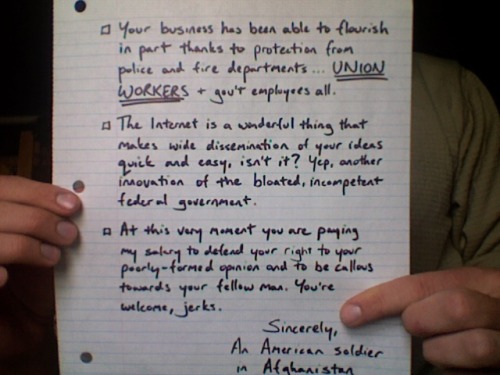 □ Your business has been able to flourish
in part thanks to protection from
police and fire departments... UNION
WORKERS + gov't employees all.
□ The Internet is a wonderful thing that
makes wide dissemination of your ideas
quick and easy, isn't it? Yep, another
innovation of the bloated, incompetent
federal government.
□ At this very moment you are paying
my salary to defend your right to your
poorly-formed opinion and to be callous
towards your fellow man. You're
welcome, jerks.
Sincerely,
An American soldier
in Afghanistan